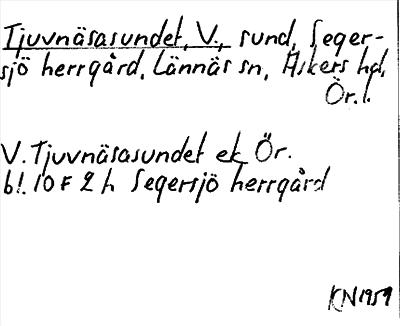 Tjuvnäsasundet, V., sund, Seger-
sjö herrgård, Lännäs sn, Askers hd,
Ör. l.
V. Tjuvnäsasundet ek Ör.
bl. 10 F 2 h Segersjö herrgård
KN 1959